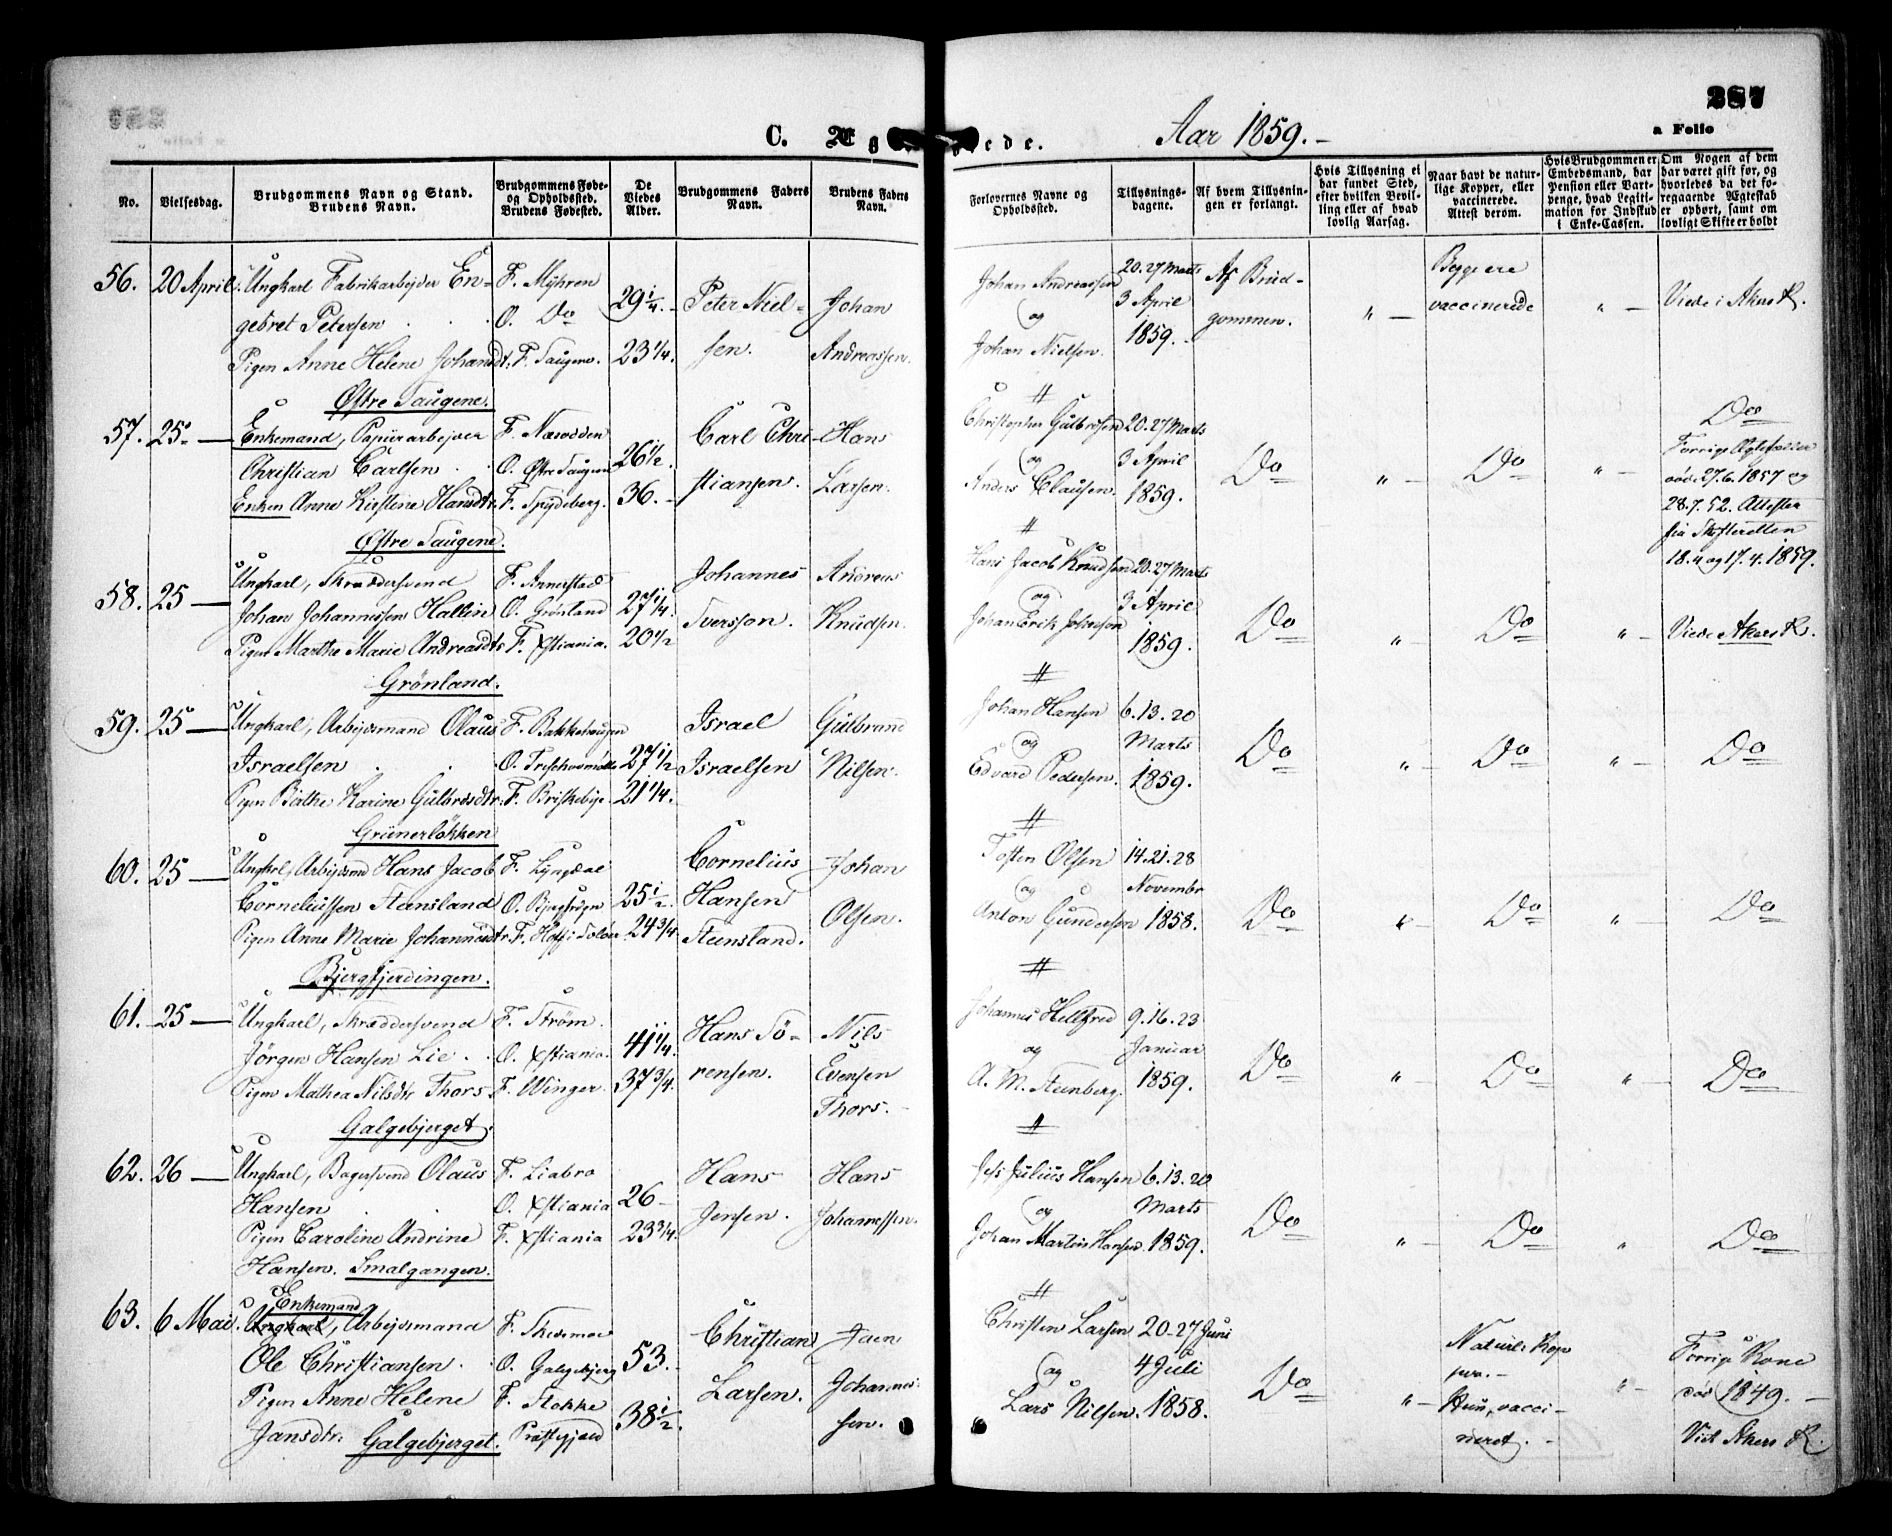 C. Ægteviede.
Aar 1859.
287
a Folio
No.
Vielsesdag.
Brudgommens Navn og Stand.
Brudens Navn.
Brudgommens Føde-
og Opholdssted.
Brudens Fødested.
De
Viedes
Alder.
Brudgommens Faders
Navn.
Brudens Faders
Navn.
Forlovernes Navne og
Opholdssted.
Tillysnings-
dagene.
Af hvem Tillysnin-
gen er forlangt.
Hvis Tillysning ei
har fundet Sted,
efter hvilken Bevil-
ling eller af hvad
lovlig Aarsag.
Naar havt de natur-
lige Kopper, eller
vaccinerede.
Attest derom.
Hvis Brudgommen er
Embedsmand, har
Pension eller Vart-
penge, hvad Legiti-
mation for Indskud
i Enke-Cassen.
Om Nogen af dem
har været gift før, og
hvorledes da det fo-
regaaende Ægteskab
er ophørt, samt om
lovligt Skifte er holdt
56. 20 April. Ungkarl Fabrikarbejder En-
gebret Petersen
Pigen Anne Helene Johansdt.
Østre Saugene.
F. Myhren
O. Do
F. Saugene.
29 1/4.
23 1/4.
Peter Niel-
sen.
Johan
Andreassen.
Johan Andreassen
og
Johan Nielsen.
20. 27 Marts
3 April
1859.
Af Brud-
gommen.
" —
Begge ere
vaccinerede
" —
Viede i Akers K.
57. 25 — Enkemand, Papiirarbejder
Christian Carlsen
Enken Anne Kirstine Hansdtr.
Østre Saugene.
F. Næsodden
O. Østre Saugene
F. Spydeberg.
26 1/2.
36. -
Carl Chri-
stiansen.
Hans
Larsen.
Christopher Gulbrdsen
og
Anders Clausen.
20. 27 Marts
3 April
1859.
Do
" —
Do
" —
Do
Forrige Ægtefæller
døde 27.6.1857 og
28.7.52. Attester
fra Skifteretten
18.4 og 17.4.1859.
58. 25 — Ungkarl, Skræddersvend
Johan Johannessen Hallin
Pigen Marthe Marie Andreasdtr
Grønland.
F. Annerstad
O. Grønland
F. Xstiania.
27 1/4.
20 1/2
Johannes
Svensson.
Andreas
Knudsen.
Hans Jacob Knudsen
og
Johan Erik Johnson
20. 27 Marts
3 April
1859.
Do
" —
Do
" —
Viede Akers K.
59. 25 — Ungkarl, Arbejdsmand Olaus
Israelsen
Pigen Berthe Karine Gulbrdsdtr.
Grünerløkken
F. Bakkehaugen
F. Briskebye.
27 1/2
21 1/4.
Israel
Israelsen
Gulbrand
Nilsen.
Johan Hansen
og
Edvard Pedersen.
6. 13. 20
Marts
1859.
Do
" —
Do
" —
Do
60. 25 — Ungkrl, Arbejdsmd Hans Jacob
Corneliussen Stensland
Pigen Anne Marie Johannesdtr.
Bjergfjerdingen.
F. Lyngdal
25 1/2.
24 3/4.
Cornelius
Hansen
Stensland.
Johan
Olsen.
Tosten Olsen
og
Anton Gundersen
14. 21. 28
Novembr
1858.
Do
" —
Do
" —
Do
61. 25 — Ungkarl, Skræddersvend
Jörgen Hansen Lie.
Pigen Mathea Nilsdtr Thors.
Galgebjerget.
F. Strøm.
O. Xstiania.
F. Winger.
41 1/4.
37 3/4.
Hans Sö-
rensen.
Nils
Evensen
Thors.
Johannes Hellfred
og
A. M. Steenberg.
9. 16. 23
Januar
1859.
Do
" —
Do
" —
Do
62. 26 — Ungkarl, Bagersvend Olaus
Hansen
Pigen Caroline Andrine
Hansen. Smalgangen.
F. Liabro
O. Xstiania
F. Xstiania
26 -
23 3/4.
Hans
Jensen.
Hans
Johannessen.
Julius Hansen
og
Johan Martin Hansen.
6. 13. 20
Marts
1859.
Do
" —
Do
"
Do
63. 6 Mai. Enkemand
Ungkarl, Arbejdsmand
Ole Christiansen.
Pigen Anne Helene
Jansdtr. Galgebjerget.
F. Skedsmo
O. Galgebjerg
F. Stokke
Præstegjæld
53.
38 1/2.
Christian
Larsen.
Jaen
Johannes-
sen.
Christen Larsen
og
Lars Nilsen.
20-27 Juni
4 Juli
1858.
Do
" —
Naturl. Kop
per. -
Hun, vacci-
neret. -
" —
Forrige Kone
død 1849. —
Viet Akers K.